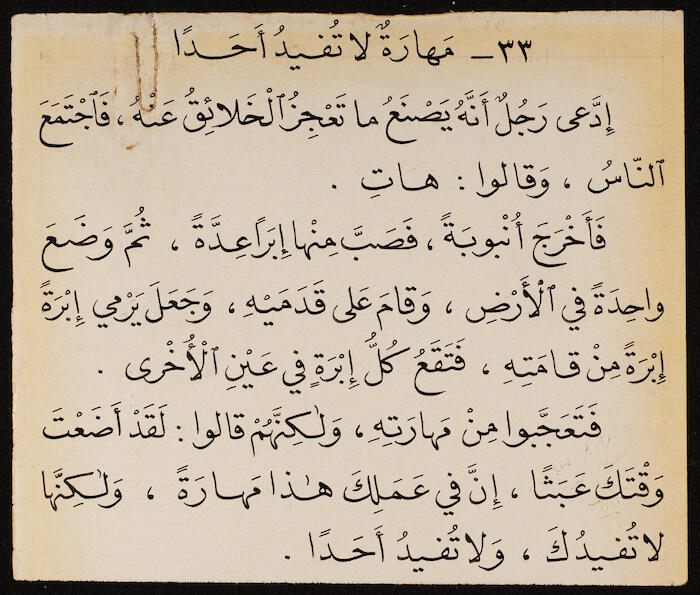 ٣٣ ــ مَهارَةٌ لا تُفيدُ أَحَدًا
إِدَّعى رَجُلٌ أَنَّهُ يَصْنَعُ ما تَعْجِزُ ٱلْخَلائِقُ عَنْهُ ، فَٱجْتَمَعَ
ٱلنّاسُ ، وَقالوا : هاتِ .
فَأَخْرَجَ أُنْبوبَةً ، فَصَبَّ مِنْها إِبَرًا عِدَّةً ، ثُمَّ وَضَعَ
واحِدَةً في ٱلْأَرْضِ ، وَقامَ عَلى قَدَمَيْهِ ، وَجَعَلَ يَرْمي إِبْرَةً
إِبْرَةً مِنْ قامَتِهِ ، فَتَقَعُ كُلُّ إِبْرَةٍ في عَيْنِ ٱلْأُخْرى .
فَتَعَجَّبوا مِنْ مَهارَتِهِ ، وَلٰكِنَّهُمْ قالوا : لَقَدْ أَضَعْتَ
وَقْتَكَ عَبَثًا ، إِنَّ في عَمَلِكَ هٰذا مَهارَةً ، وَلٰكِنَّها
لا تُفيدُكَ ، وَلا تُفيدُ أَحَدًا .